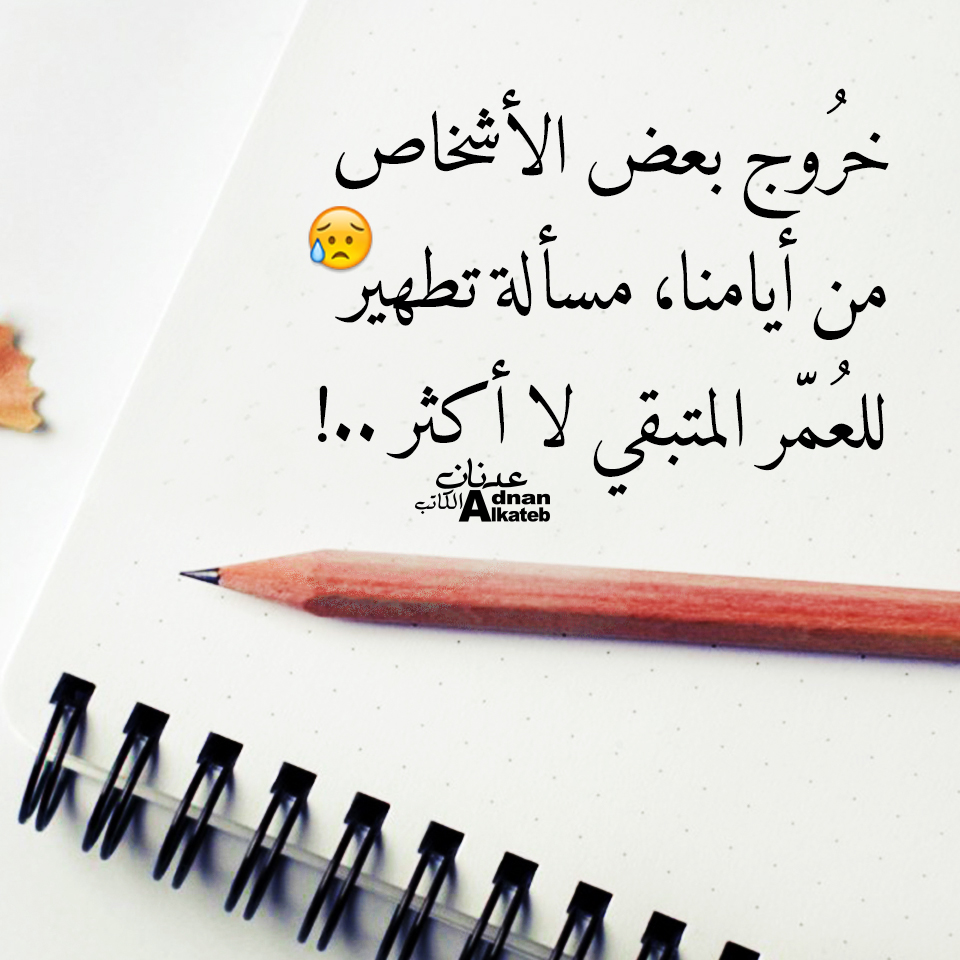 خرُوج بعض الأشخاص
من أيامنا، مسألة تطهير
للعُمّر المتبقي لا أكثر ..!
عدنان
الكاتب Adnan
Alkateb